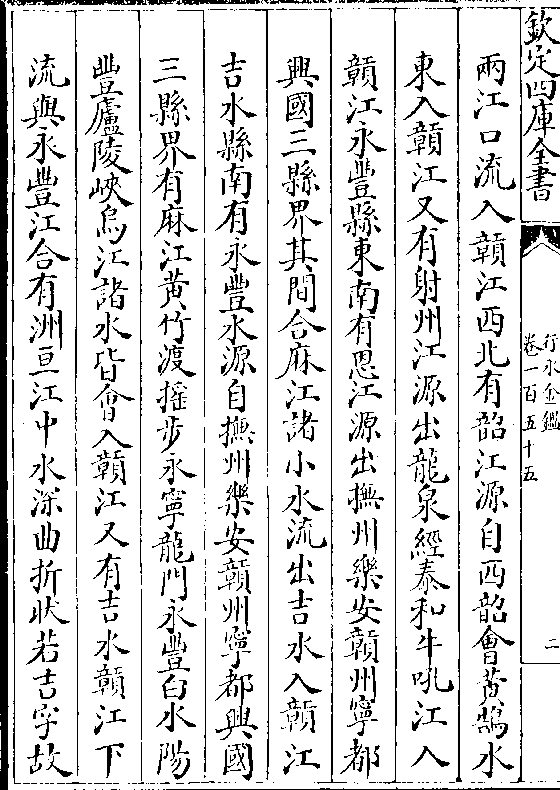 欽定四庫全書
行水金鑑
卷一百五十五
二
兩江口流入贑江西北有韶江源自西韶會黃鵠水
東入贑江又有射州江源出龍泉經泰和牛吼江入
贑江永豐縣東南有恩江源出撫州樂安贑州寧都
興國三縣界其間合麻江諸小水流出吉水入贑江
吉水縣南有永豐水源自撫州樂安贑州寧都興國
三縣界有麻江黃竹渡摇步永寧龍門永豐白水陽
豐廬陵峽烏江諸水皆會入贑江又有吉水贑江下
流與永豐江合有洲亘江中水深曲折状若吉字故